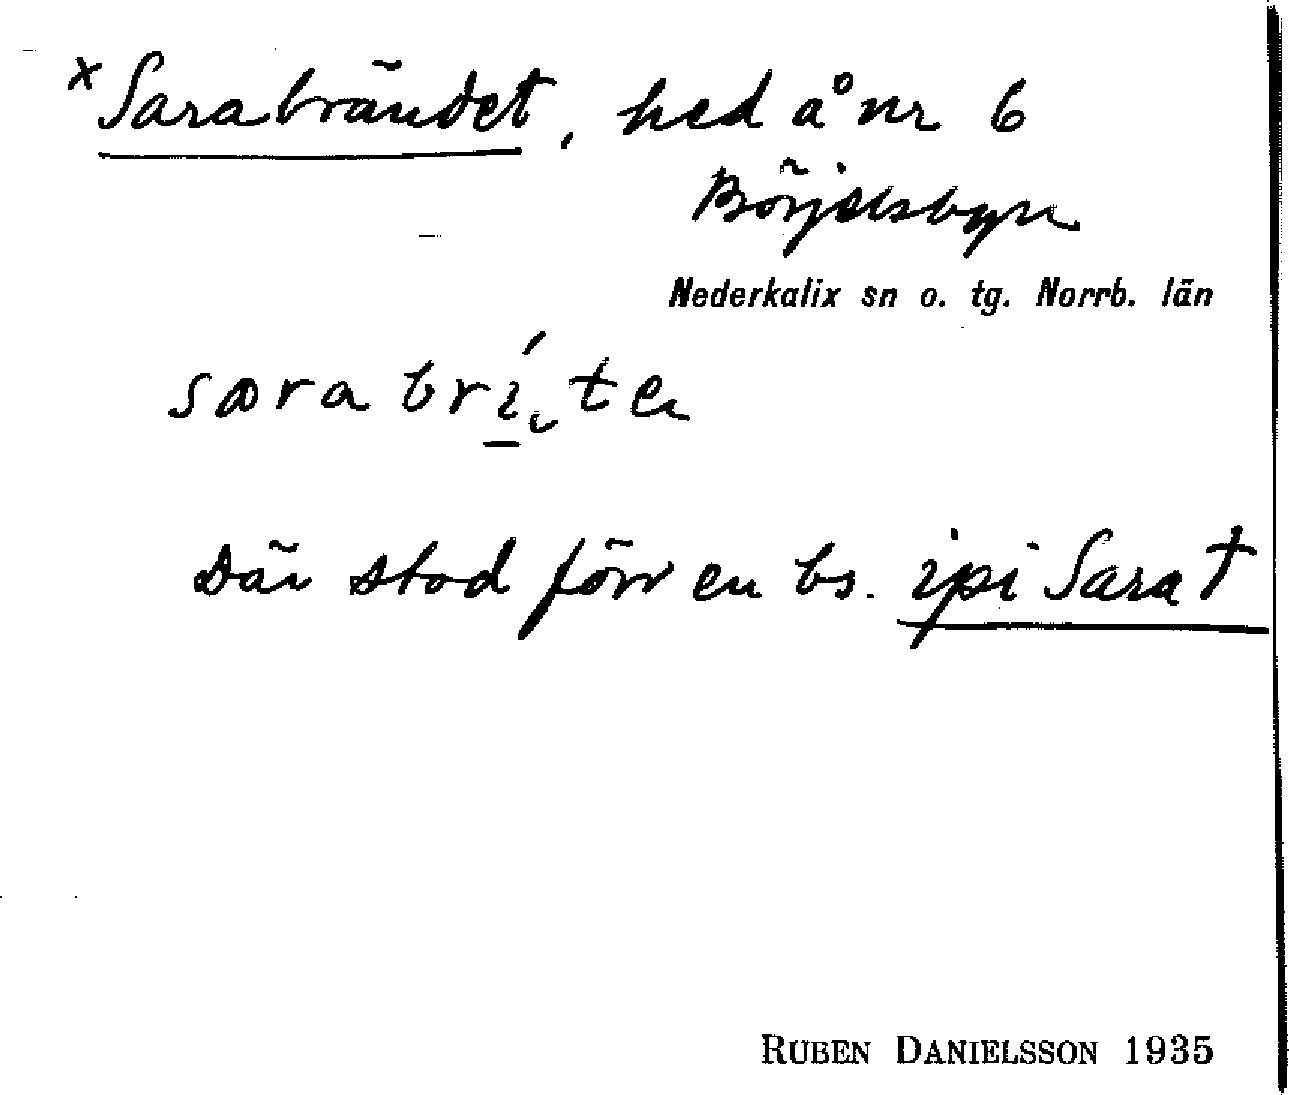 x Sarabrändet, hed å nr 6
Börjelsbyn
Nederkalix sn o. tg. Norrb. län
Där stod förr en bs. ipi Sara†
RUBEN DANIELSSON 1935